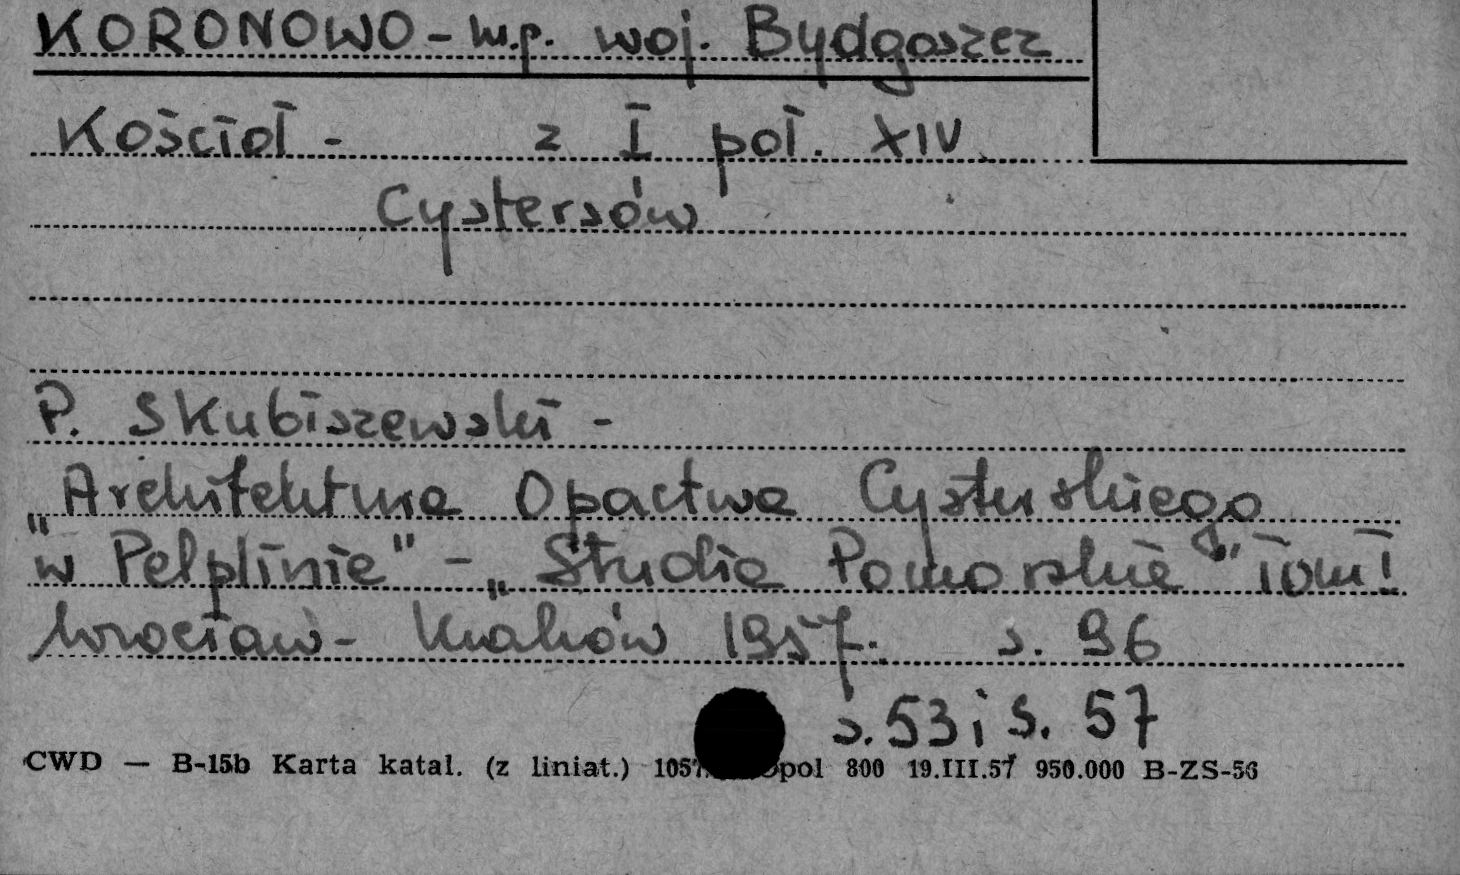 KORONOWO - m.p. woj. Bydgoszcz
Kościół - z I poł. XIV
Cystersów
P. Skubiszewski -
„Architektura Opactwa Cysterskiego
w Pelplinie" - „Studia Pomorskie" Tom I
Wrocław - Kraków 1957. s. 96
s. 53 i s. 57
CWD — B-15b Karta katal. (z liniat.) pol 800 19.III.57 950.000 B-ZS-56